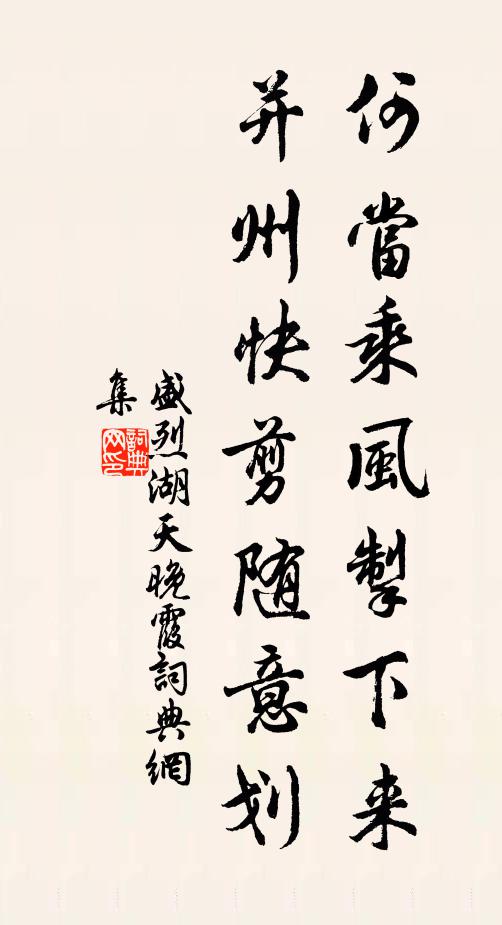 何當乘風掣下来
并州快剪随意划
盛烈湖天晚霞詞典網
集
詞典网印